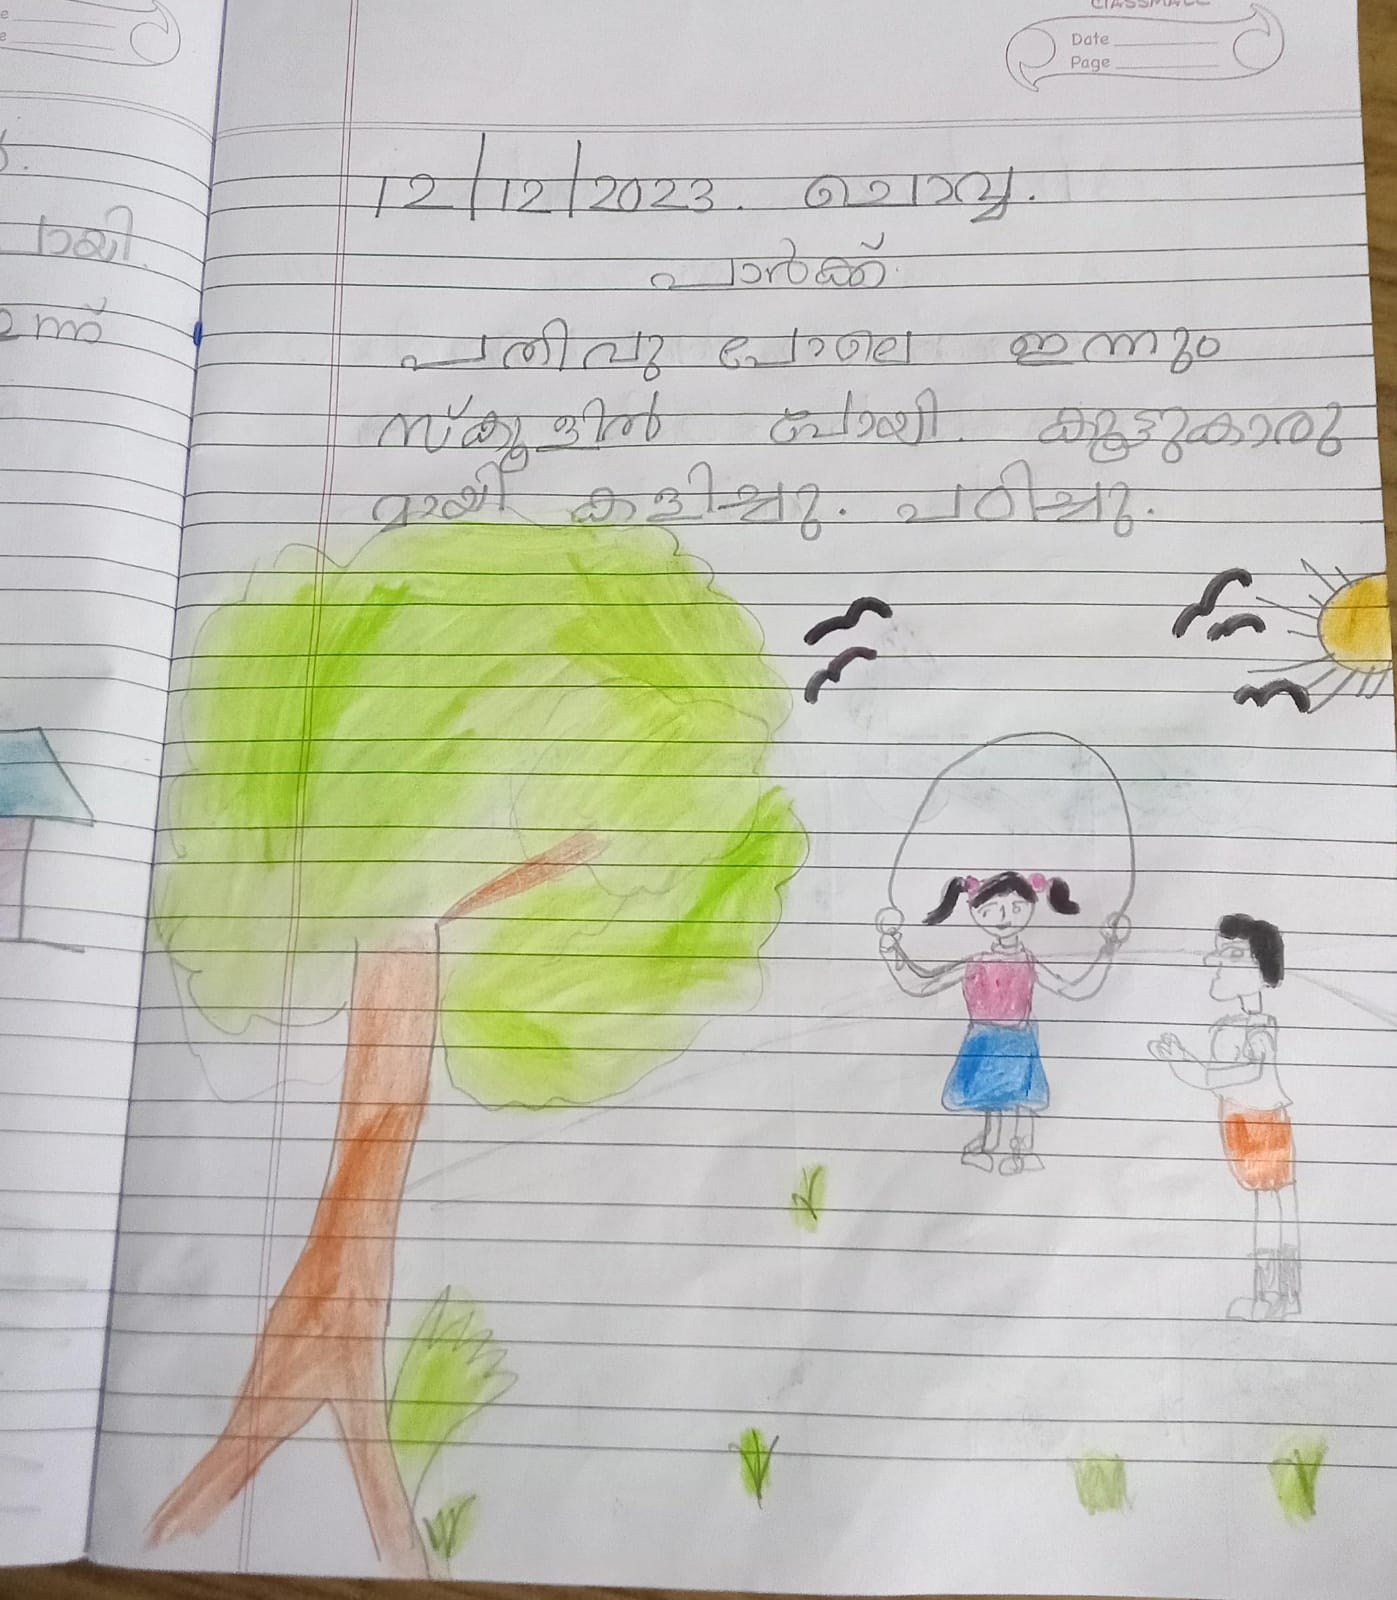 classmate
Date
Page
12/12/2023. ചൊവ്വ.
പാർക്ക്
പതിവു പോലെ ഇന്നും
സ്കൂളിൽ പോയി. കൂട്ടുകാരു
മായി കളിച്ചു. പഠിച്ചു.